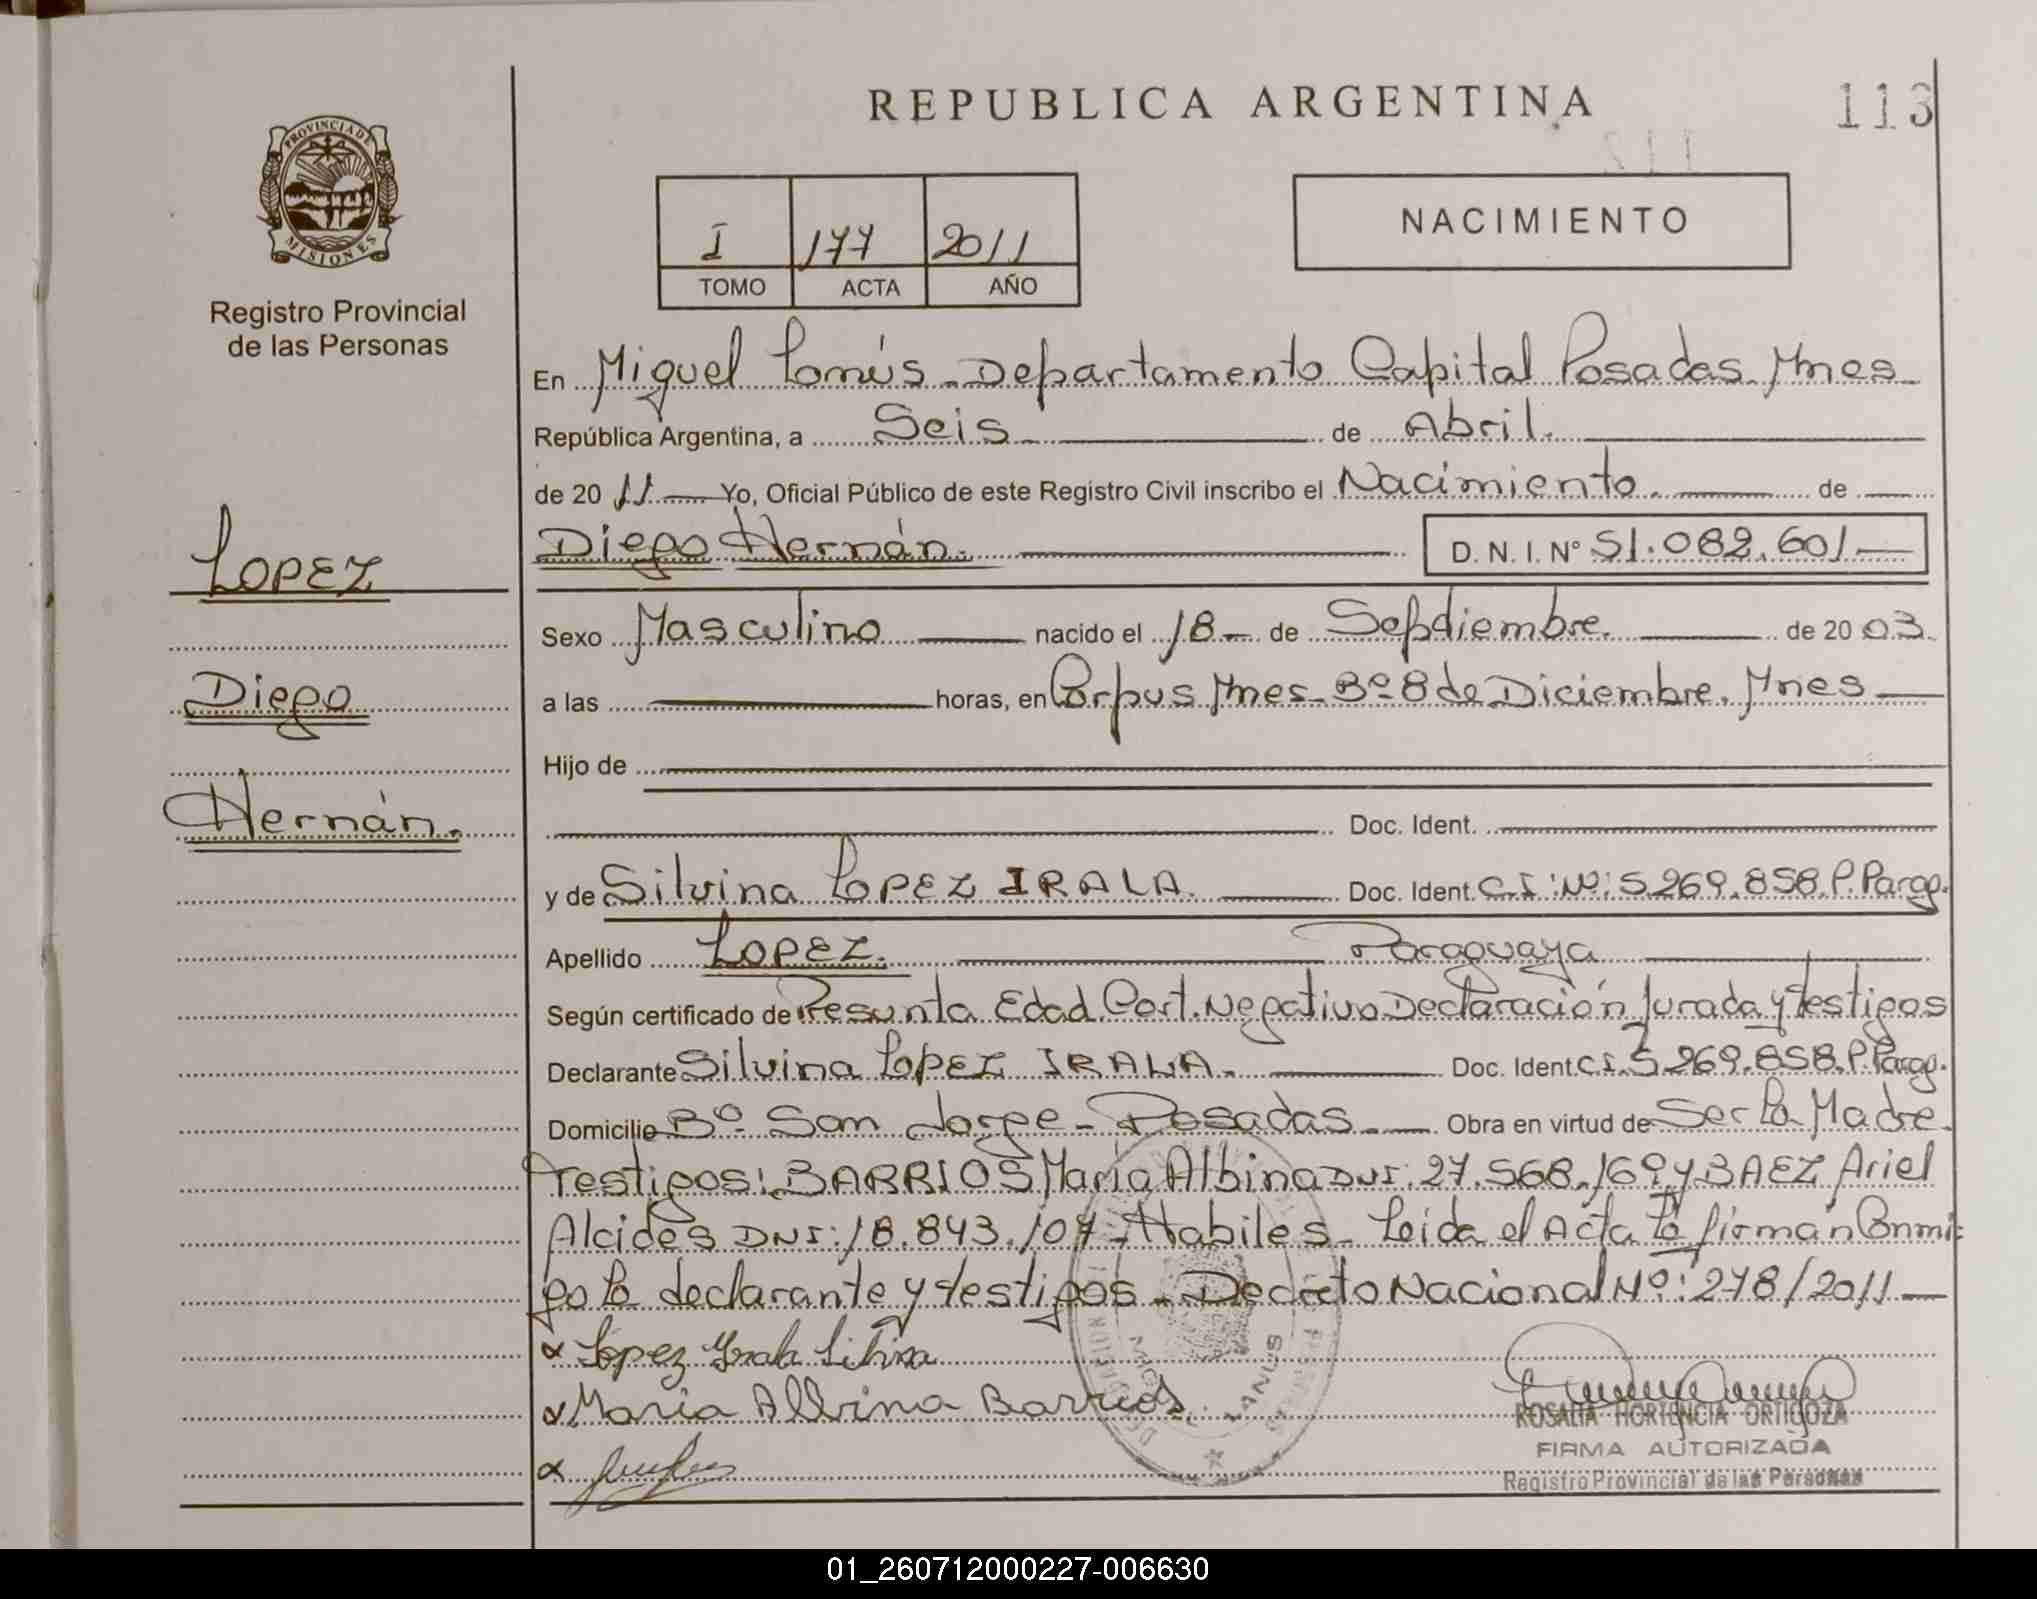 REPUBLICA ARGENTINA
113
PROVINCIA DE
MISIONES
Registro Provincial
de las Personas
I 177 2011
TOMO ACTA AÑO
NACIMIENTO
En Miguel Lanús - Departamento Capital Posadas Mnes
República Argentina, a Seis de Abril.
de 20 11 Yo, Oficial Público de este Registro Civil inscribo el Nacimiento. de
Diego Hernán. D. N. I. Nº 51.082.601
LOPEZ
Diego
Hernán.
Sexo Masculino nacido el 18 de Sepdiembre. de 20 03.
a las horas, en Corpus Mnes - Bº 8 de Diciembre. Mnes
Hijo de
Doc. Ident.
y de Silvina LOPEZ IRALA. Doc. Ident. C.I: Nº: 5.269.858.P.Parag.
Apellido LOPEZ. Paraguaya
Según certificado de Presunta Edad Cert. Negativo Declaración Jurada y testigos
Declarante Silvina LOPEZ IRALA. Doc. Ident C.I. 5.269.858.P.Parag.
Domicilio Bº San Jorge - Posadas. Obra en virtud de Ser La Madre.
Testigos: BARRIOS María Albina DNI: 27.568.169 y BAEZ Ariel
Alcides DNI: 18.843.107 - Habiles - Leida el Acta La firman Conmi-
go la declarante y testigos - Decreto Nacional Nº: 278/2011
Lopez Irala Silvina
Maria Albina Barrios
LANUS
ROSALIA HORTENCIA ORTIGOZA
FIRMA AUTORIZADA
Registro Provincial de las Personas
01_260712000227-006630